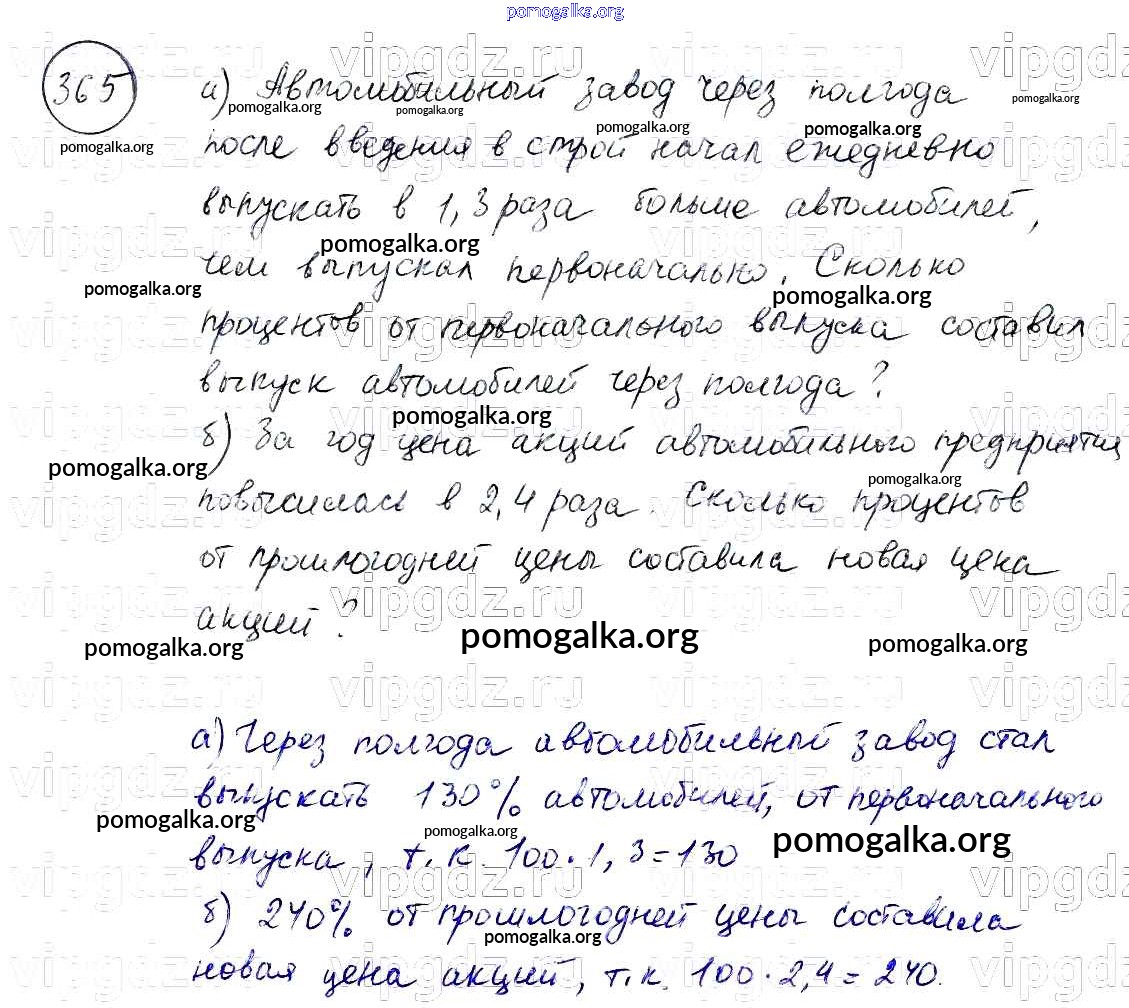 pomogalka.org
365
а) Автомобильный завод через полгода
после введения в строй начал ежедневно
выпускать в 1,3 раза больше автомобилей,
чем выпускал первоначально. Сколько
процентов от первоначального выпуска составил
выпуск автомобилей через полгода?
б) За год цена акций автомобильного предприятия
повысилась в 2,4 раза. Сколько процентов
от прошлогодней цены составила новая цена
акций?
а) Через полгода автомобильный завод стал
выпускать 130% автомобилей, от первоначального
выпуска, т.к. 100·1,3=130
б) 240% от прошлогодней цены составила
новая цена акций, т.к. 100·2,4=240.